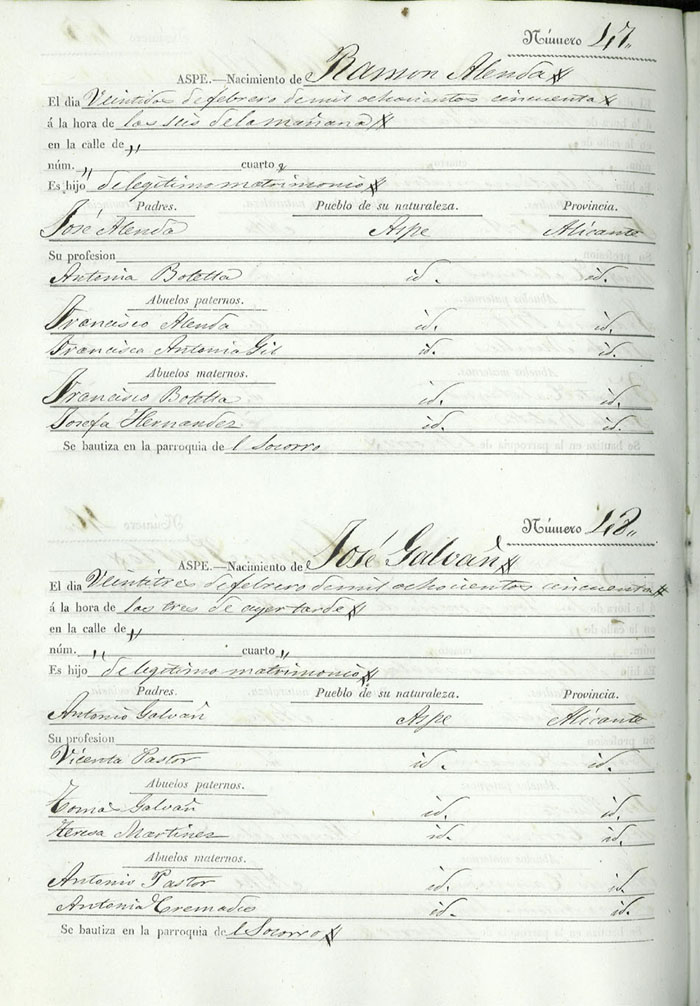 Número 47„
ASPE.—Nacimiento de Ramon Alenda
El dia Veintidos de febrero de mil ochocientos cincuenta
á la hora de las seis de la mañana
en la calle de „
núm. „ cuarto „
Es hijo de legitimo matrimonio
Padres. Pueblo de su naturaleza. Provincia.
José Alenda Aspe Alicante
Su profesion
Antonia Botella id. id.
Abuelos paternos.
Francisco Alenda id. id.
Francisca Antonia Gil id. id.
Abuelos maternos.
Francisco Botella id. id.
Josefa Hernandez id. id.
Se bautiza en la parroquia de l Socorro
Número 48„
ASPE.—Nacimiento de José Galvañ
El dia Veintitres de febrero de mil ochocientos cincuenta
á la hora de las tres de ayer tarde
en la calle de „
núm. „ cuarto „
Es hijo de legitimo matrimonio
Padres. Pueblo de su naturaleza. Provincia.
Antonio Galvañ Aspe Alicante
Su profesion
Vicenta Pastor id. id.
Abuelos paternos.
Tomás Galvañ id. id.
Teresa Martinez id. id.
Abuelos maternos.
Antonio Pastor id. id.
Antonia Cremades id. id.
Se bautiza en la parroquia de l Socorro